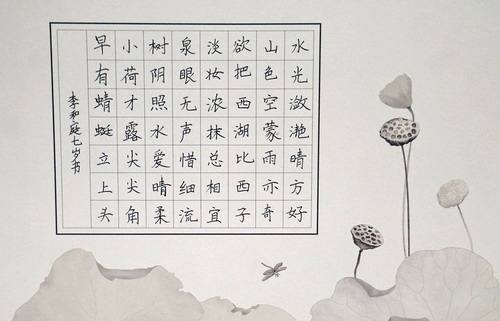 水光潋滟晴方好
山色空蒙雨亦奇
欲把西湖比西子
淡妆浓抹总相宜
泉眼无声惜细流
树阴照水爱晴柔
小荷才露尖尖角
早有蜻蜓立上头
李和庭七岁书